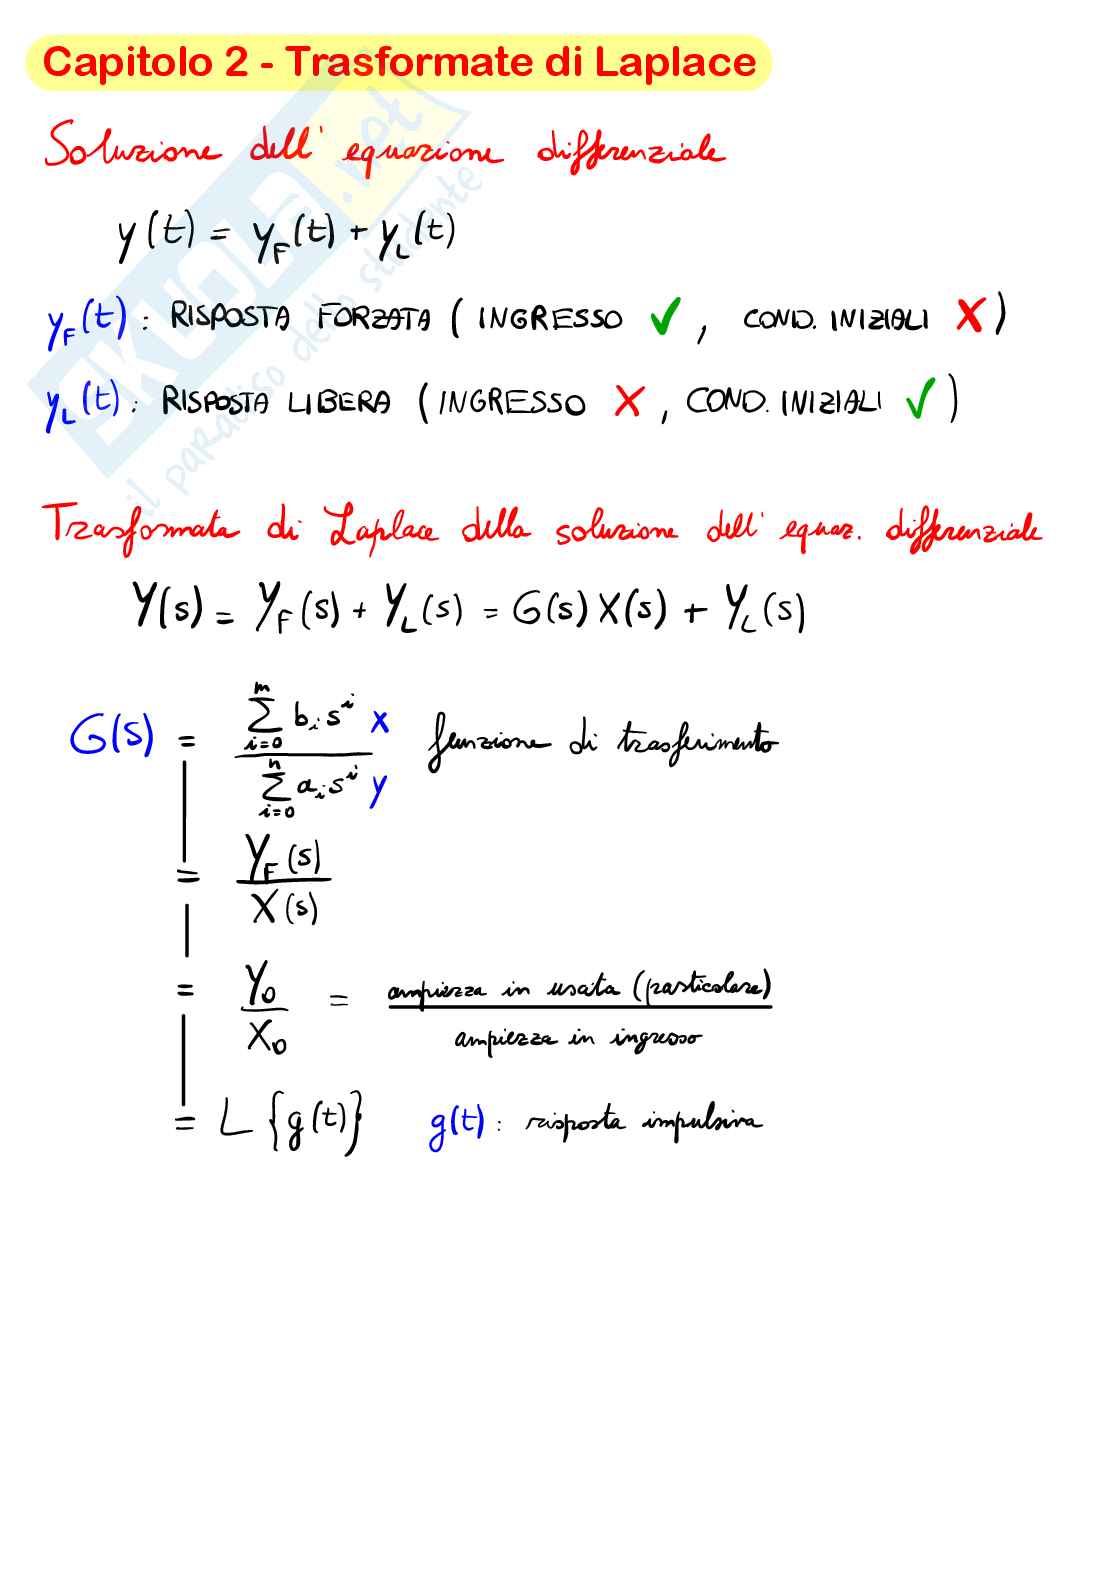 Capitolo 2 - Trasformate di Laplace
Soluzione dell' equazione differenziale
y(t) = y_F(t) + y_L(t)
y_F(t) : RISPOSTA FORZATA ( INGRESSO ✓ , COND. INIZIALI ✗ )
y_L(t) : RISPOSTA LIBERA ( INGRESSO ✗ , COND. INIZIALI ✓ )
Trasformata di Laplace della soluzione dell' equaz. differenziale
Y(s) = Y_F(s) + Y_L(s) = G(s) X(s) + Y_L(s)
G(s) = \frac{\sum_{i=0}^{m} b_i s^i}{\sum_{i=0}^{n} a_i s^i} x y funzione di trasferimento
= \frac{Y_F(s)}{X(s)}
= \frac{Y_0}{X_0} = \frac{ampiezza in uscita (particolare)}{ampiezza in ingresso}
= L {g(t)} g(t) : risposta impulsiva
SKUOLA.net
il paradiso dello studente